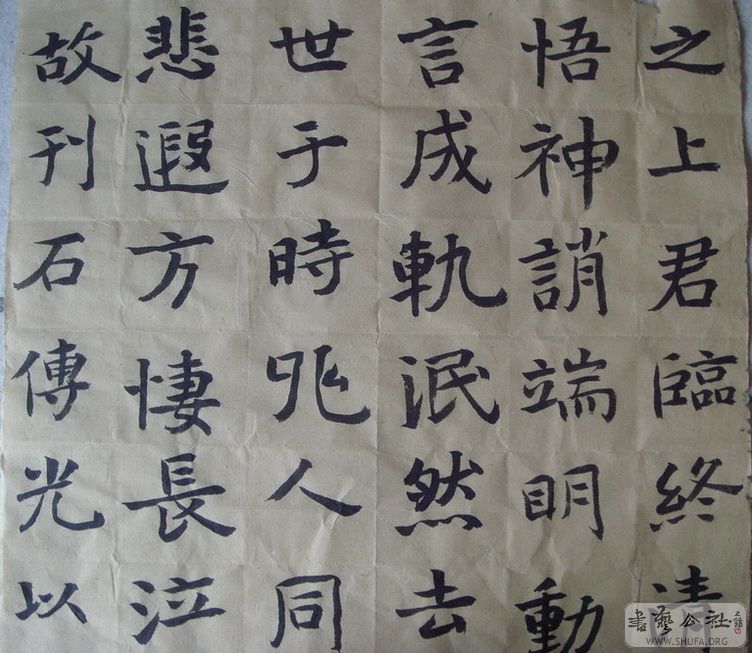 之上君臨終清
悟神誚端明動
言成軌泯然去
世于時兆人同
悲遐方悽長泣
故刊石傳光以
書藝公社
WWW.SHUFA.ORG